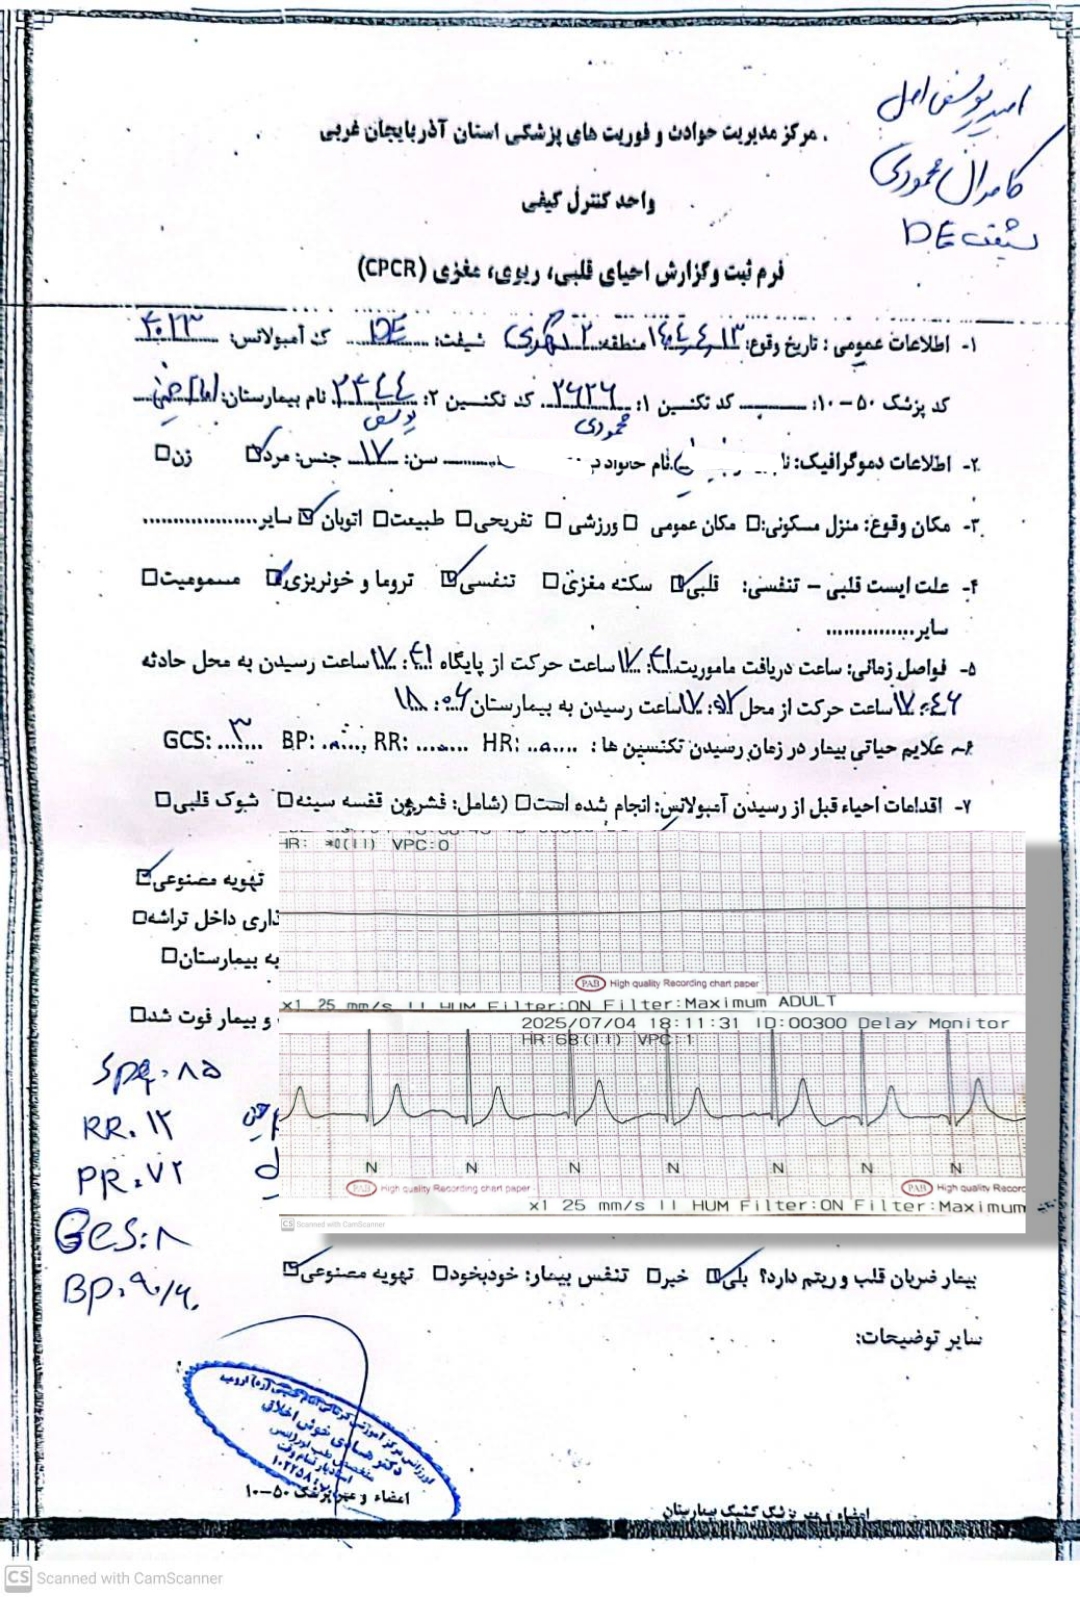 امیر یوسفی اصل
کامران محمودی
شیفت DE
مرکز مدیریت حوادث و فوریت های پزشکی استان آذربایجان غربی
واحد کنترل کیفی
فرم ثبت و گزارش احیای قلبی، ریوی، مغزی (CPCR)
۱- اطلاعات عمومی: تاریخ وقوع: ۱۴۰۴٫۴٫۱۳ منطقه: شیفت: DE کد آمبولانس: ۴۰۲۳
کد پزشک ۵۰-۱۰: کد تکنسین 1: ۲۶۲۶ کد تکنسین ۲: نام بیمارستان: امام خمینی
محمودی یوسفی
۲- اطلاعات دموگرافیک: سن: ۱۷ جنس: مرد زن
۳- مکان وقوع: منزل مسکونی: مکان عمومی ورزشی تفریحی طبیعت اتوبان سایر
۴- علت ایست قلبی - تنفسی: قلبی سکته مغزی تنفسی تروما و خونریزی مسمومیت
سایر
۵- فواصل زمانی: ساعت دریافت ماموریت ۱۷:۴۱ ساعت حرکت از پایگاه ۱۷:۴۱ ساعت رسیدن به محل حادثه
۱۷:۴۶ ساعت حرکت از محل ۱۷:۵۲ ساعت رسیدن به بیمارستان ۱۸:۰۶
۶- علایم حیاتی بیمار در زمان رسیدن تکنسین ها: HR: RR: BP: GCS: ۳
۷- اقدامات احیاء قبل از رسیدن آمبولانس: انجام شده است (شامل: فشردن قفسه سینه شوک قلبی
HR: *0(II) VPC:0
تهویه مصنوعی
داخل تراشه
به بیمارستان
PAB High quality Recording chart paper
x1 25 mm/s II HUM Filter:ON Filter:Maximum ADULT
و بیمار فوت شد
2025/07/04 18:11:31 ID:00300 Delay Monitor
HR:68(II) VPC:1
SPO2: ۸۵
RR: ۱۲
PR: ۷۲
GCS: ۸
BP: ۹۰/۶۰
N N N N N N N
PAB High quality Recording chart paper PAB High quality Record
x1 25 mm/s II HUM Filter:ON Filter:Maximum
CS Scanned with CamScanner
بیمار ضربان قلب و ریتم دارد؟ بلی خیر تنفس بیمار: خودبخود تهویه مصنوعی
سایر توضیحات:
دکتر هادی خوش اخلاق
متخصص طب اورژانس
استادیار تمام وقت
امضاء و مهر پزشک ۵۰-۱۰
امضاء و مهر پزشک کشیک بیمارستان
CS Scanned with CamScanner